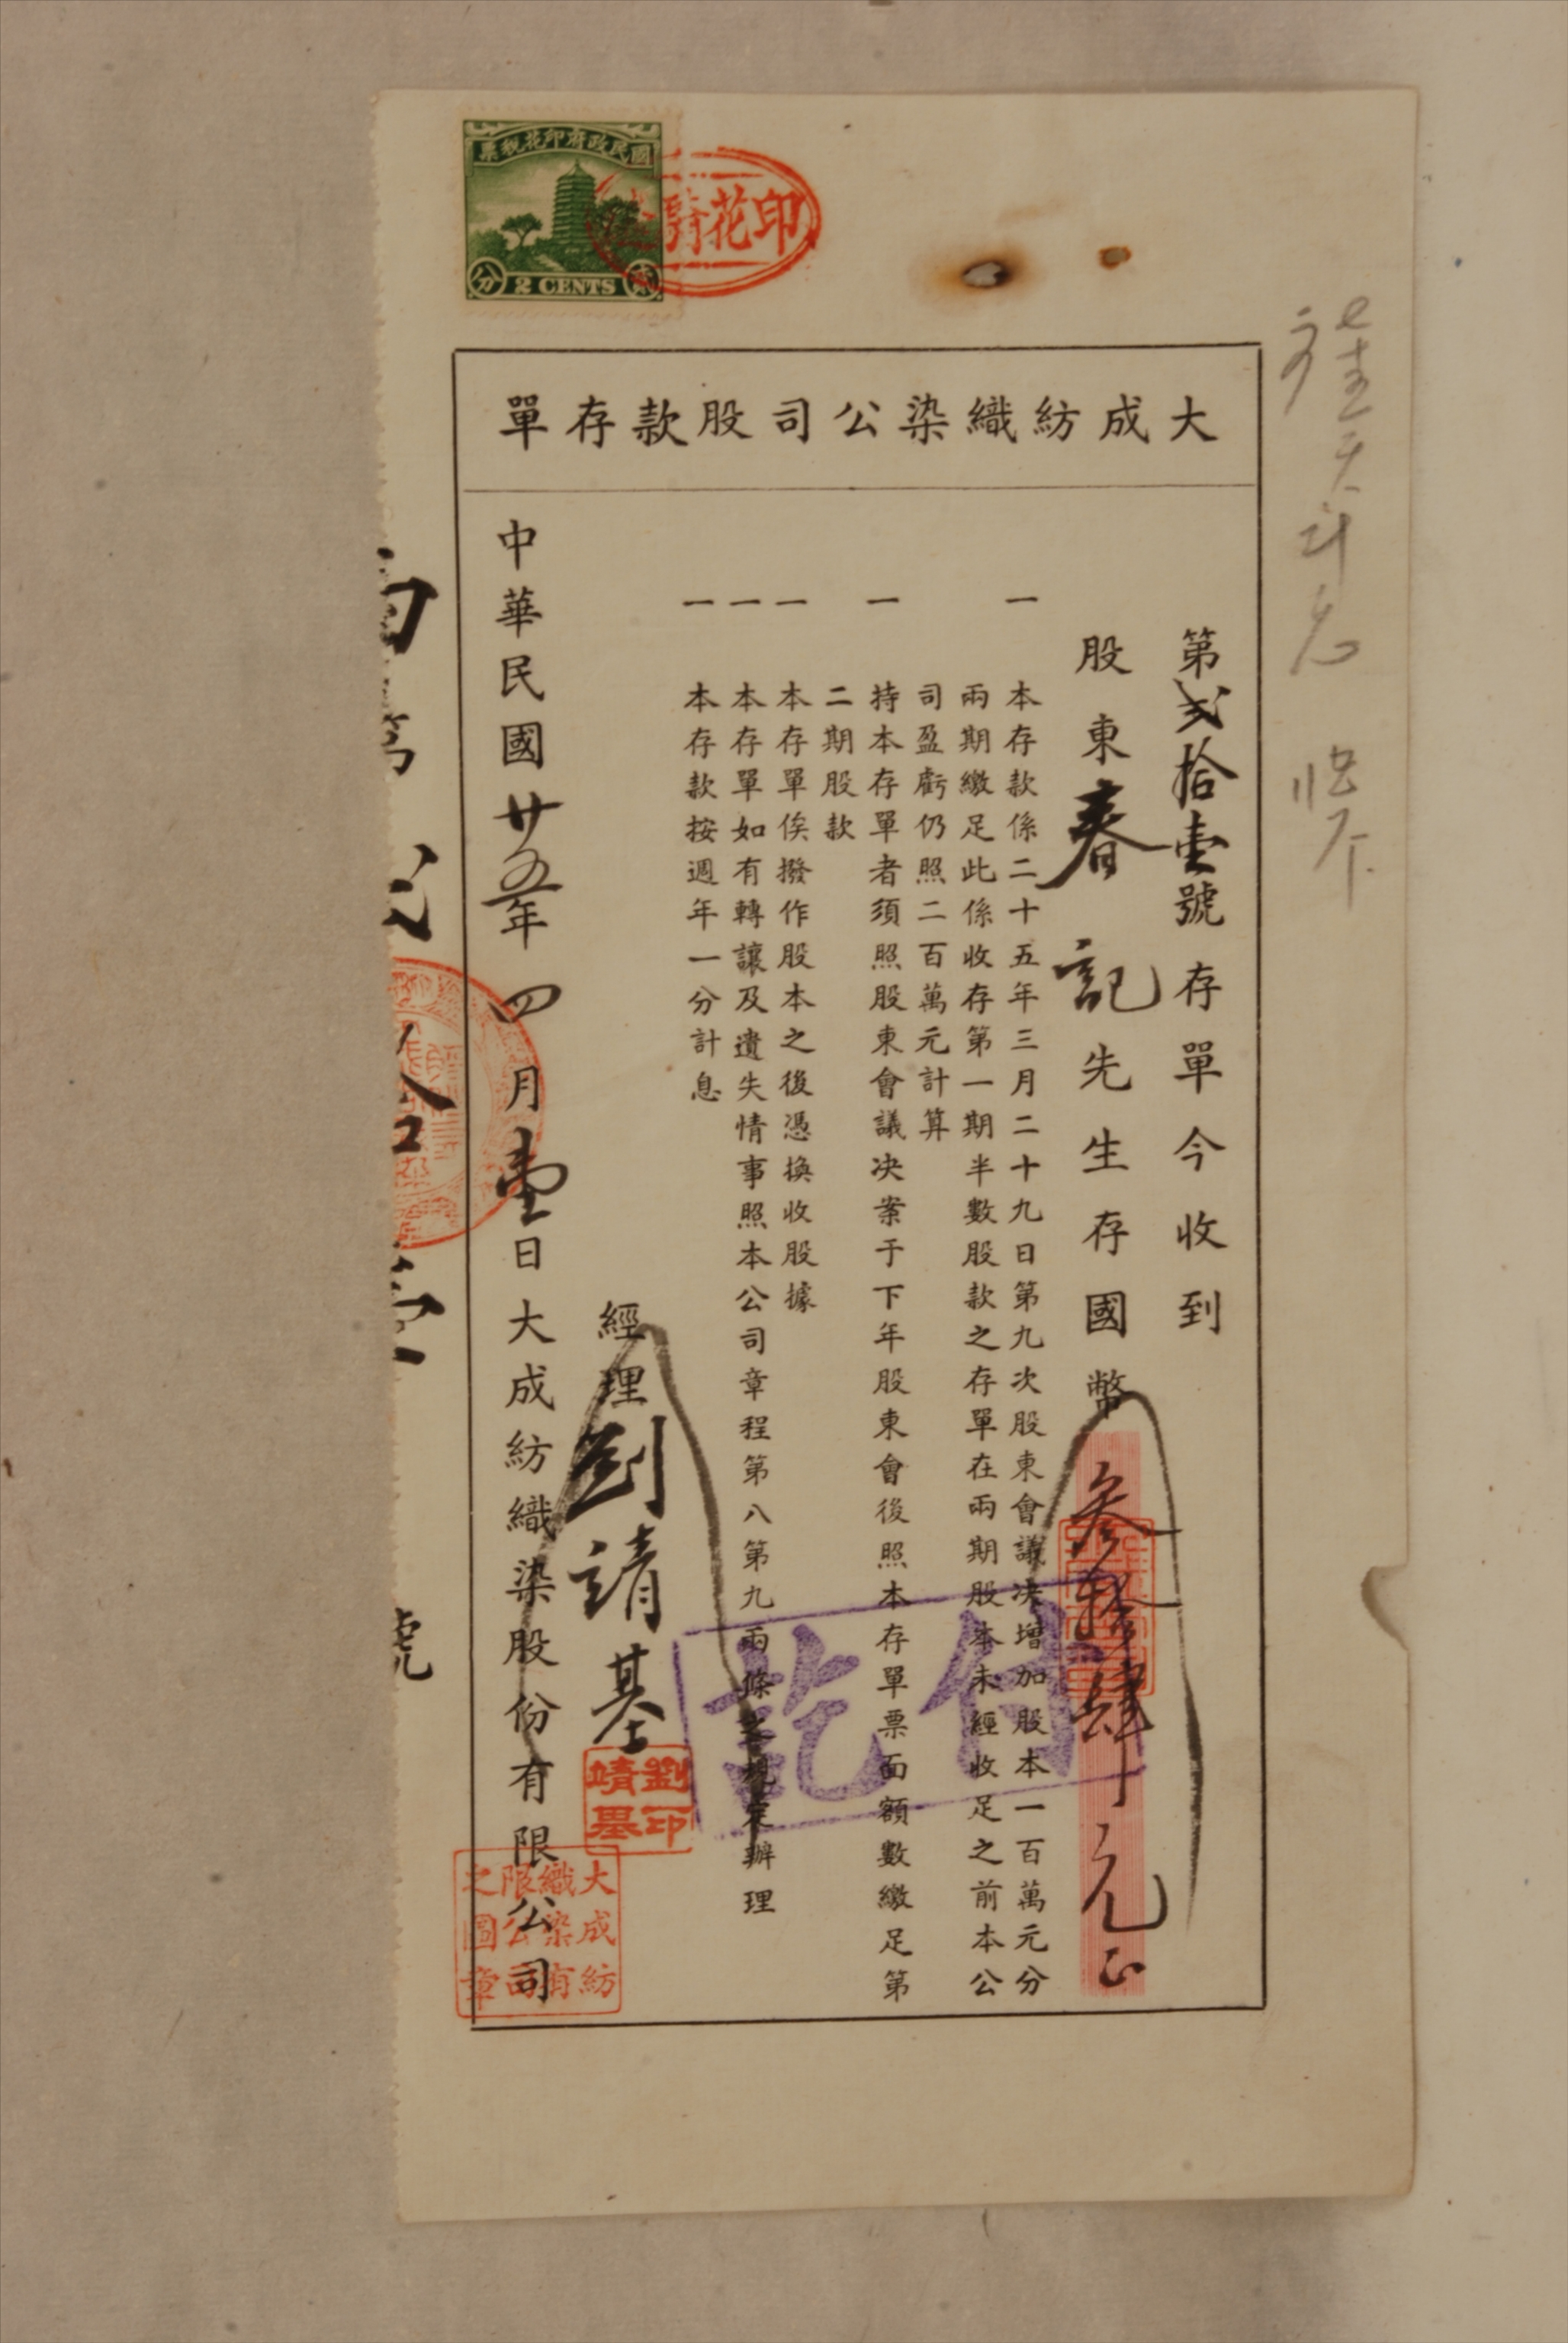 國民政府印花稅票
貳分
2 CENTS
印花騎
大成紡織染公司股款存單
第弍拾壹號存單今收到
股東春記先生存國幣叁拾肆元正
一 本存款係二十五年三月二十九日第九次股東會議决增加股本一百萬元分
兩期繳足此係收存第一期半數股款之存單在兩期股本未經收足之前本公
司盈虧仍照二百萬元計算
一 持本存單者須照股東會議决案于下年股東會後照本存單票面額數繳足第
二期股款
一 本存單俟撥作股本之後憑換收股據
一 本存單如有轉讓及遺失情事照本公司章程第八第九兩條之規定辦理
一 本存款按週年一分計息
付訖
經理劉靖基
劉印靖基
中華民國廿五年四月壹日大成紡織染股份有限公司
大成紡織染有限公司之圖章
號